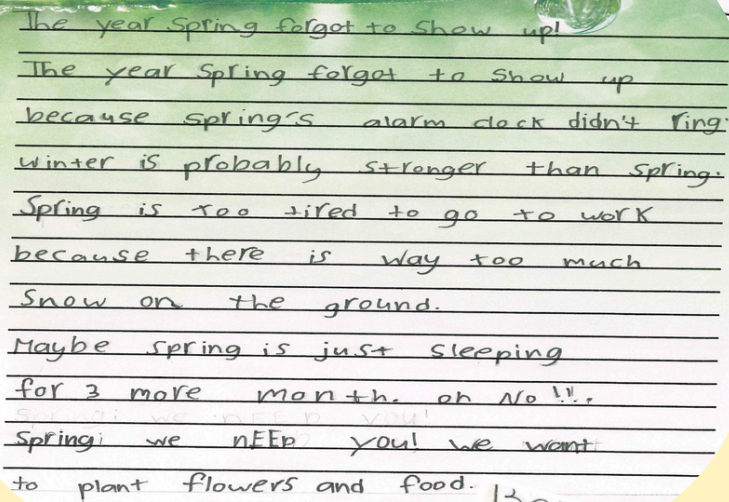 The year Spring forgot to Show up!
The year Spring forgot to Show up
because spring's alarm clock didn't ring.
winter is probably stronger than spring.
Spring is too tired to go to work
because there is way too much
Snow on the ground.
Maybe spring is just sleeping
for 3 more month. oh No !!!.
Spring; we nEED you! we want
to plant flowers and food.